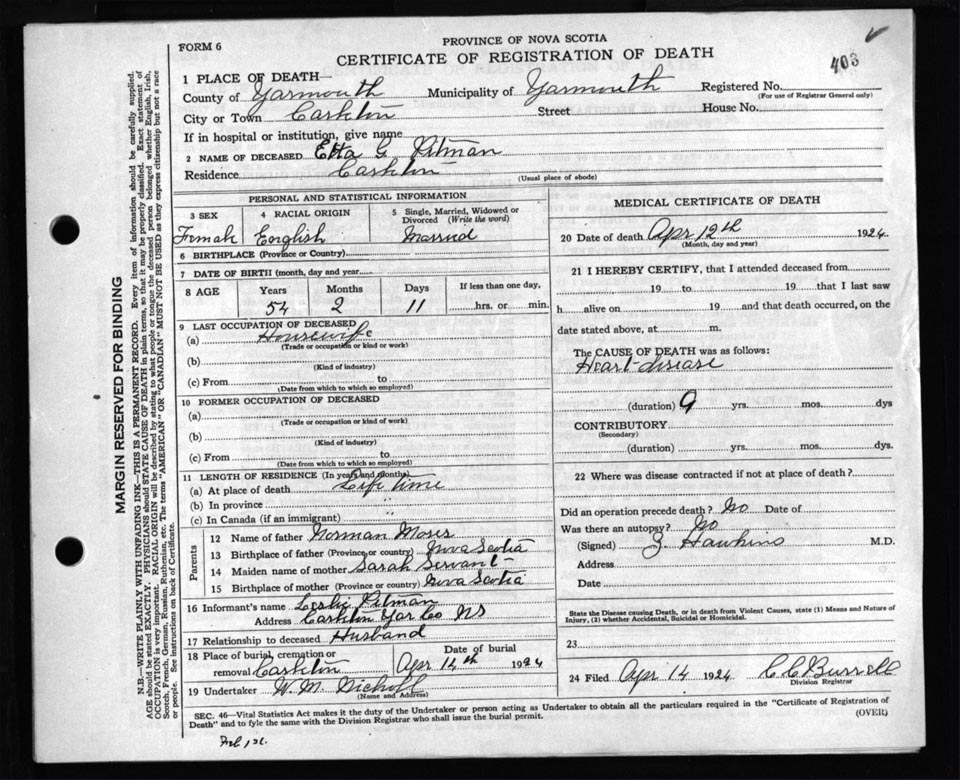 FORM 6
PROVINCE OF NOVA SCOTIA
CERTIFICATE OF REGISTRATION OF DEATH
403
1 PLACE OF DEATH—
County of Yarmouth Municipality of Yarmouth Registered No.
(For use of Registrar General only)
City or Town Carleton Street House No.
If in hospital or institution, give name
2 NAME OF DECEASED Etta G. Pitman
Residence Carleton
(Usual place of abode)
PERSONAL AND STATISTICAL INFORMATION
3 SEX 4 RACIAL ORIGIN 5 Single, Married, Widowed or Divorced (Write the word)
Female English Married
6 BIRTHPLACE (Province or Country)
7 DATE OF BIRTH (month, day and year)
8 AGE Years Months Days If less than one day,
54 2 11 hrs. or min.
9 LAST OCCUPATION OF DECEASED
(a) Housewife
(Trade or occupation or kind or work)
(b)
(Kind of industry)
(c) From to
(Date from which to which so employed)
10 FORMER OCCUPATION OF DECEASED
(a)
(Trade or occupation or kind of work)
(b)
(Kind of industry)
(c) From to
(Date from which to which so employed)
11 LENGTH OF RESIDENCE (In years and months)
(a) At place of death Life time
(b) In province "
(c) In Canada (if an immigrant)
Parents
12 Name of father Norman Moses
13 Birthplace of father (Province or country) Nova Scotia
14 Maiden name of mother Sarah Servant
15 Birthplace of mother (Province or country) Nova Scotia
16 Informant's name Leslie Pitman
Address Carleton Yar Co NS
17 Relationship to deceased Husband
18 Place of burial, cremation or removal Carleton Date of burial Apr 14th 1924
19 Undertaker W. M. Nickoll
(Name and Address)
MEDICAL CERTIFICATE OF DEATH
20 Date of death Apr 12th 1924
(Month, day and year)
21 I HEREBY CERTIFY, that I attended deceased from
19 to 19 that I last saw
h alive on 19 and that death occurred, on the
date stated above, at m.
The CAUSE OF DEATH was as follows:
Heart-disease
(duration) 9 yrs. mos. dys
CONTRIBUTORY
(Secondary)
(duration) yrs. mos. dys.
22 Where was disease contracted if not at place of death?
Did an operation precede death? No Date of
Was there an autopsy? No
(Signed) Z. Hawkins M.D.
Address
Date
State the Disease causing Death, or in death from Violent Causes, state (1) Means and Nature of
Injury, (2) whether Accidental, Suicidal or Homicidal.
23
24 Filed Apr 14 1924 C C Burrell
Division Registrar
SEC. 46—Vital Statistics Act makes it the duty of the Undertaker or person acting as Undertaker to obtain all the particulars required in the "Certificate of Registration of
Death" and to fyle the same with the Division Registrar who shall issue the burial permit.
(OVER)
MARGIN RESERVED FOR BINDING
N.B.—WRITE PLAINLY WITH UNFADING INK—THIS IS A PERMANENT RECORD. Every item of information should be carefully supplied.
AGE should be stated EXACTLY. PHYSICIANS should STATE CAUSE OF DEATH in plain terms, so that it may be properly classified. Exact statement of
OCCUPATION is very important. RACIAL ORIGIN will be described by stating to what people or tongue the deceased person belonged whether English, Irish,
Scotch, French, German, Russian, Ruthenian, etc. The terms "AMERICAN" or "CANADIAN" MUST NOT BE USED as they express citizenship but not a race
or people. See instructions on back of Certificate.